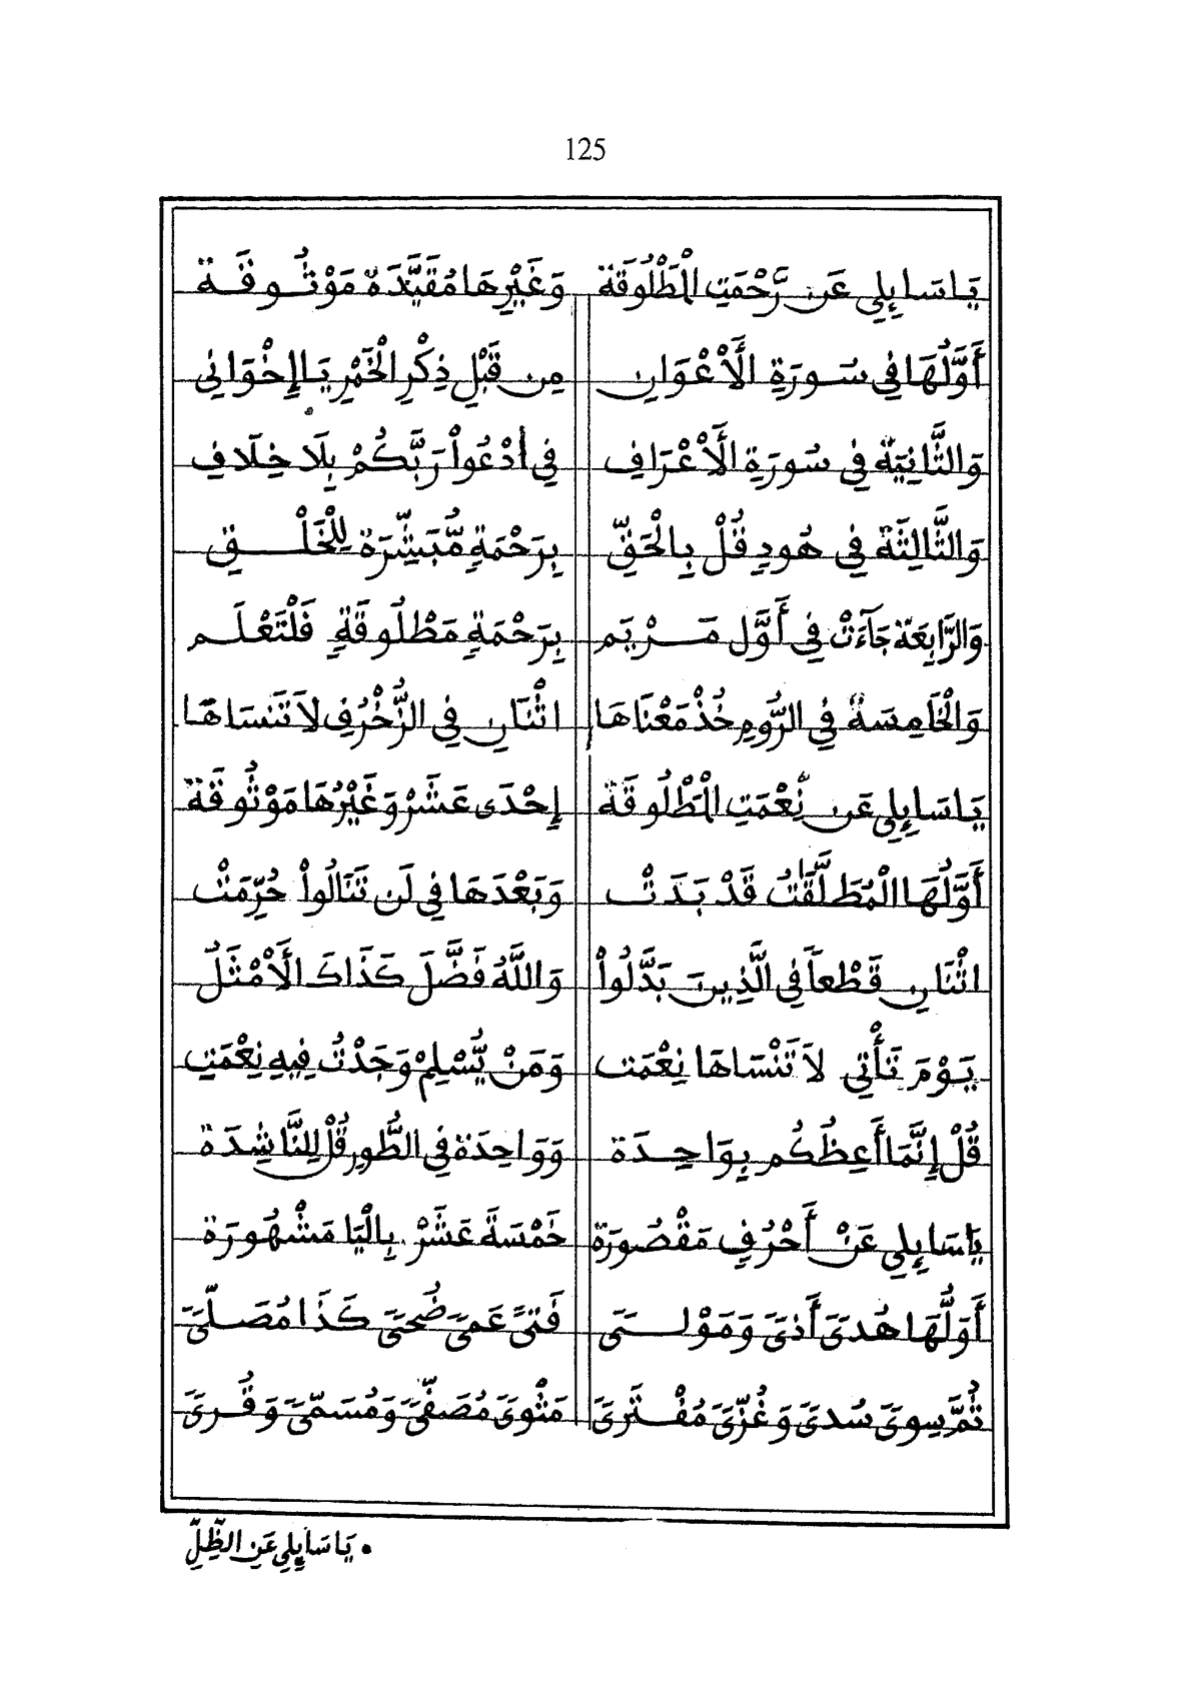 125
يَاسَايِلِي عَن رَّحْمَتِ الْمَطْلُوقَة وَغَيْرِهَا مُقَيَّدَة مَوْثُوقَة
أَوَّلُهَا فِي سُورَةِ الَأَعْوَانِ مِن قَبْلِ ذِكْرِ الْخَمْرِ يَا إِخْوَانِي
وَالثَّانِيَة فِي سُورَةِ الَأَعْرَافِ فِي أدْعُواْ رَبَّكُمْ بِلَا خِلَافِ
وَالثَّالِثَة فِي هُودٍ قُلْ بِالْحَقِّ بِرَحْمَةٍ مُّبَشِّرَة لِلْخَلْقِ
وَالرَّابِعَة جَآءَتْ فِي أَوَّل مَرْيَم بِرَحْمَةٍ مَطْلُوقَةٍ فَلْتَعْلَم
وَالْخَامِسَة فِي الرُّومِ خُذْ مَعْنَاهَا اثْنَانِ فِي الزُّخْرُفِ لَا تَنسَاهَا
يَاسَايِلِي عَن نِّعْمَتِ الْمَطْلُوقَة إِحْدَى عَشَرْ وَغَيْرُهَا مَوْثُوقَة
أَوَّلُهَا الْمُطَلَّقَاتُ قَدْ بَدَتْ وَبَعْدَهَا فِي لَن تَنَالُواْ حُرِّمَتْ
اثْنَانِ قَطْعاً فِي الَّذِينَ بَدَّلُواْ وَاللَّهُ فَضَّلَ كَذَاكَ الَأَمْثَلُ
يَوْمَ تَأْتِي لَا تَنْسَاهَا نِعْمَت وَمَنْ يُّسْلِمْ وَجَدْتُ فِيهِ نِعْمَتِ
قُلْ إِنَّمَا أَعِظُكُم بِوَاحِدَة وَوَاحِدَة فِي الطُّورِ قُلْ لِلنَّاشِدَة
يَاسَايِلِي عَنْ أَحْرُفٍ مَقْصُورَة خَمْسَةَ عَشَرْ بِالْيَا مَشْهُورَة
أَوَلُّهَا هُدىً أَذىً وَمَوْلىً فَتىً عَمىً ضُحىً كَذَا مُصَلّىً
ثُمَّ سِوىً سُدىً وَغُزّىً مُفْتَرىً مَثْوىً مُصَفّىً وَمُسَمّىً وَقُرىً
• يَاسَايِلِي عَنِ الظِّلِّ